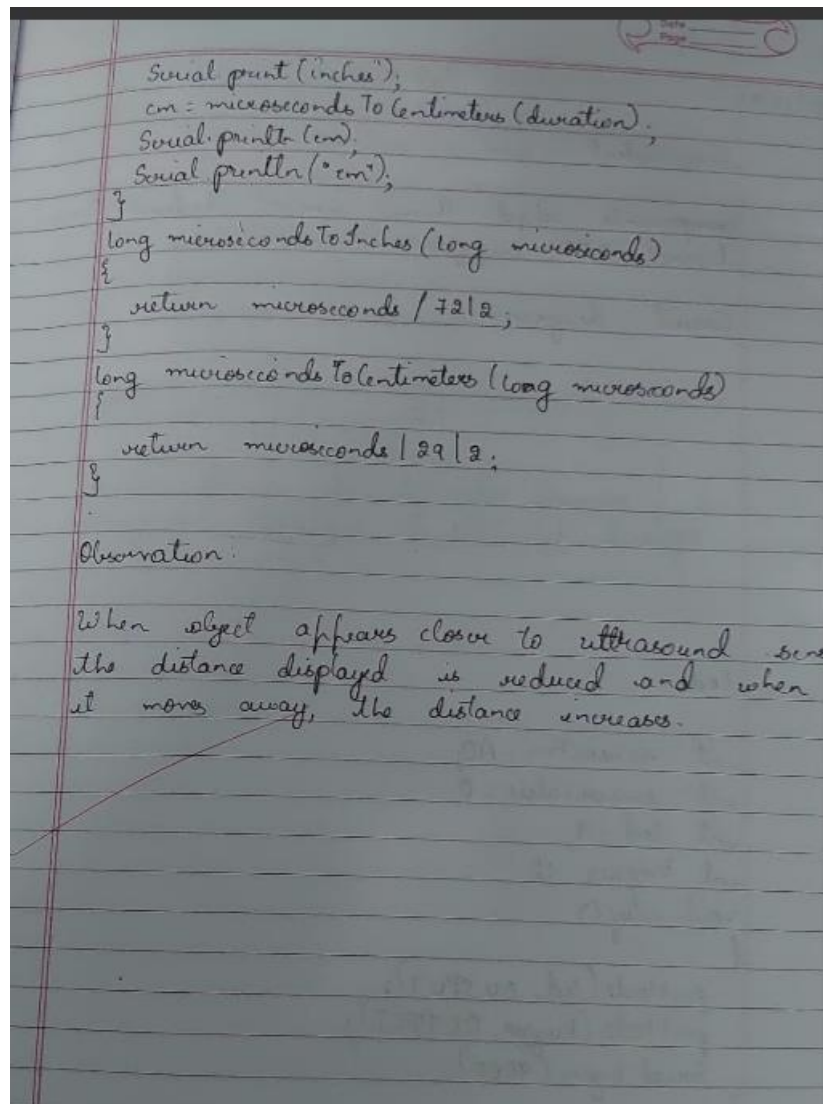 Date
Page
Serial print (inches");
cm = microseconds To Centimeters (duration);
Serial.println (cm);
Serial println ("cm");
}
long microseconds To Inches (long microseconds)
{
return microseconds / 72|2;
}
long microseconds To Centimeters (long microseconds)
{
return microseconds | 29 | 2;
}
Observation:
When object appears closer to ultrasound sens
the distance displayed is reduced and when
it moves away, the distance increases.